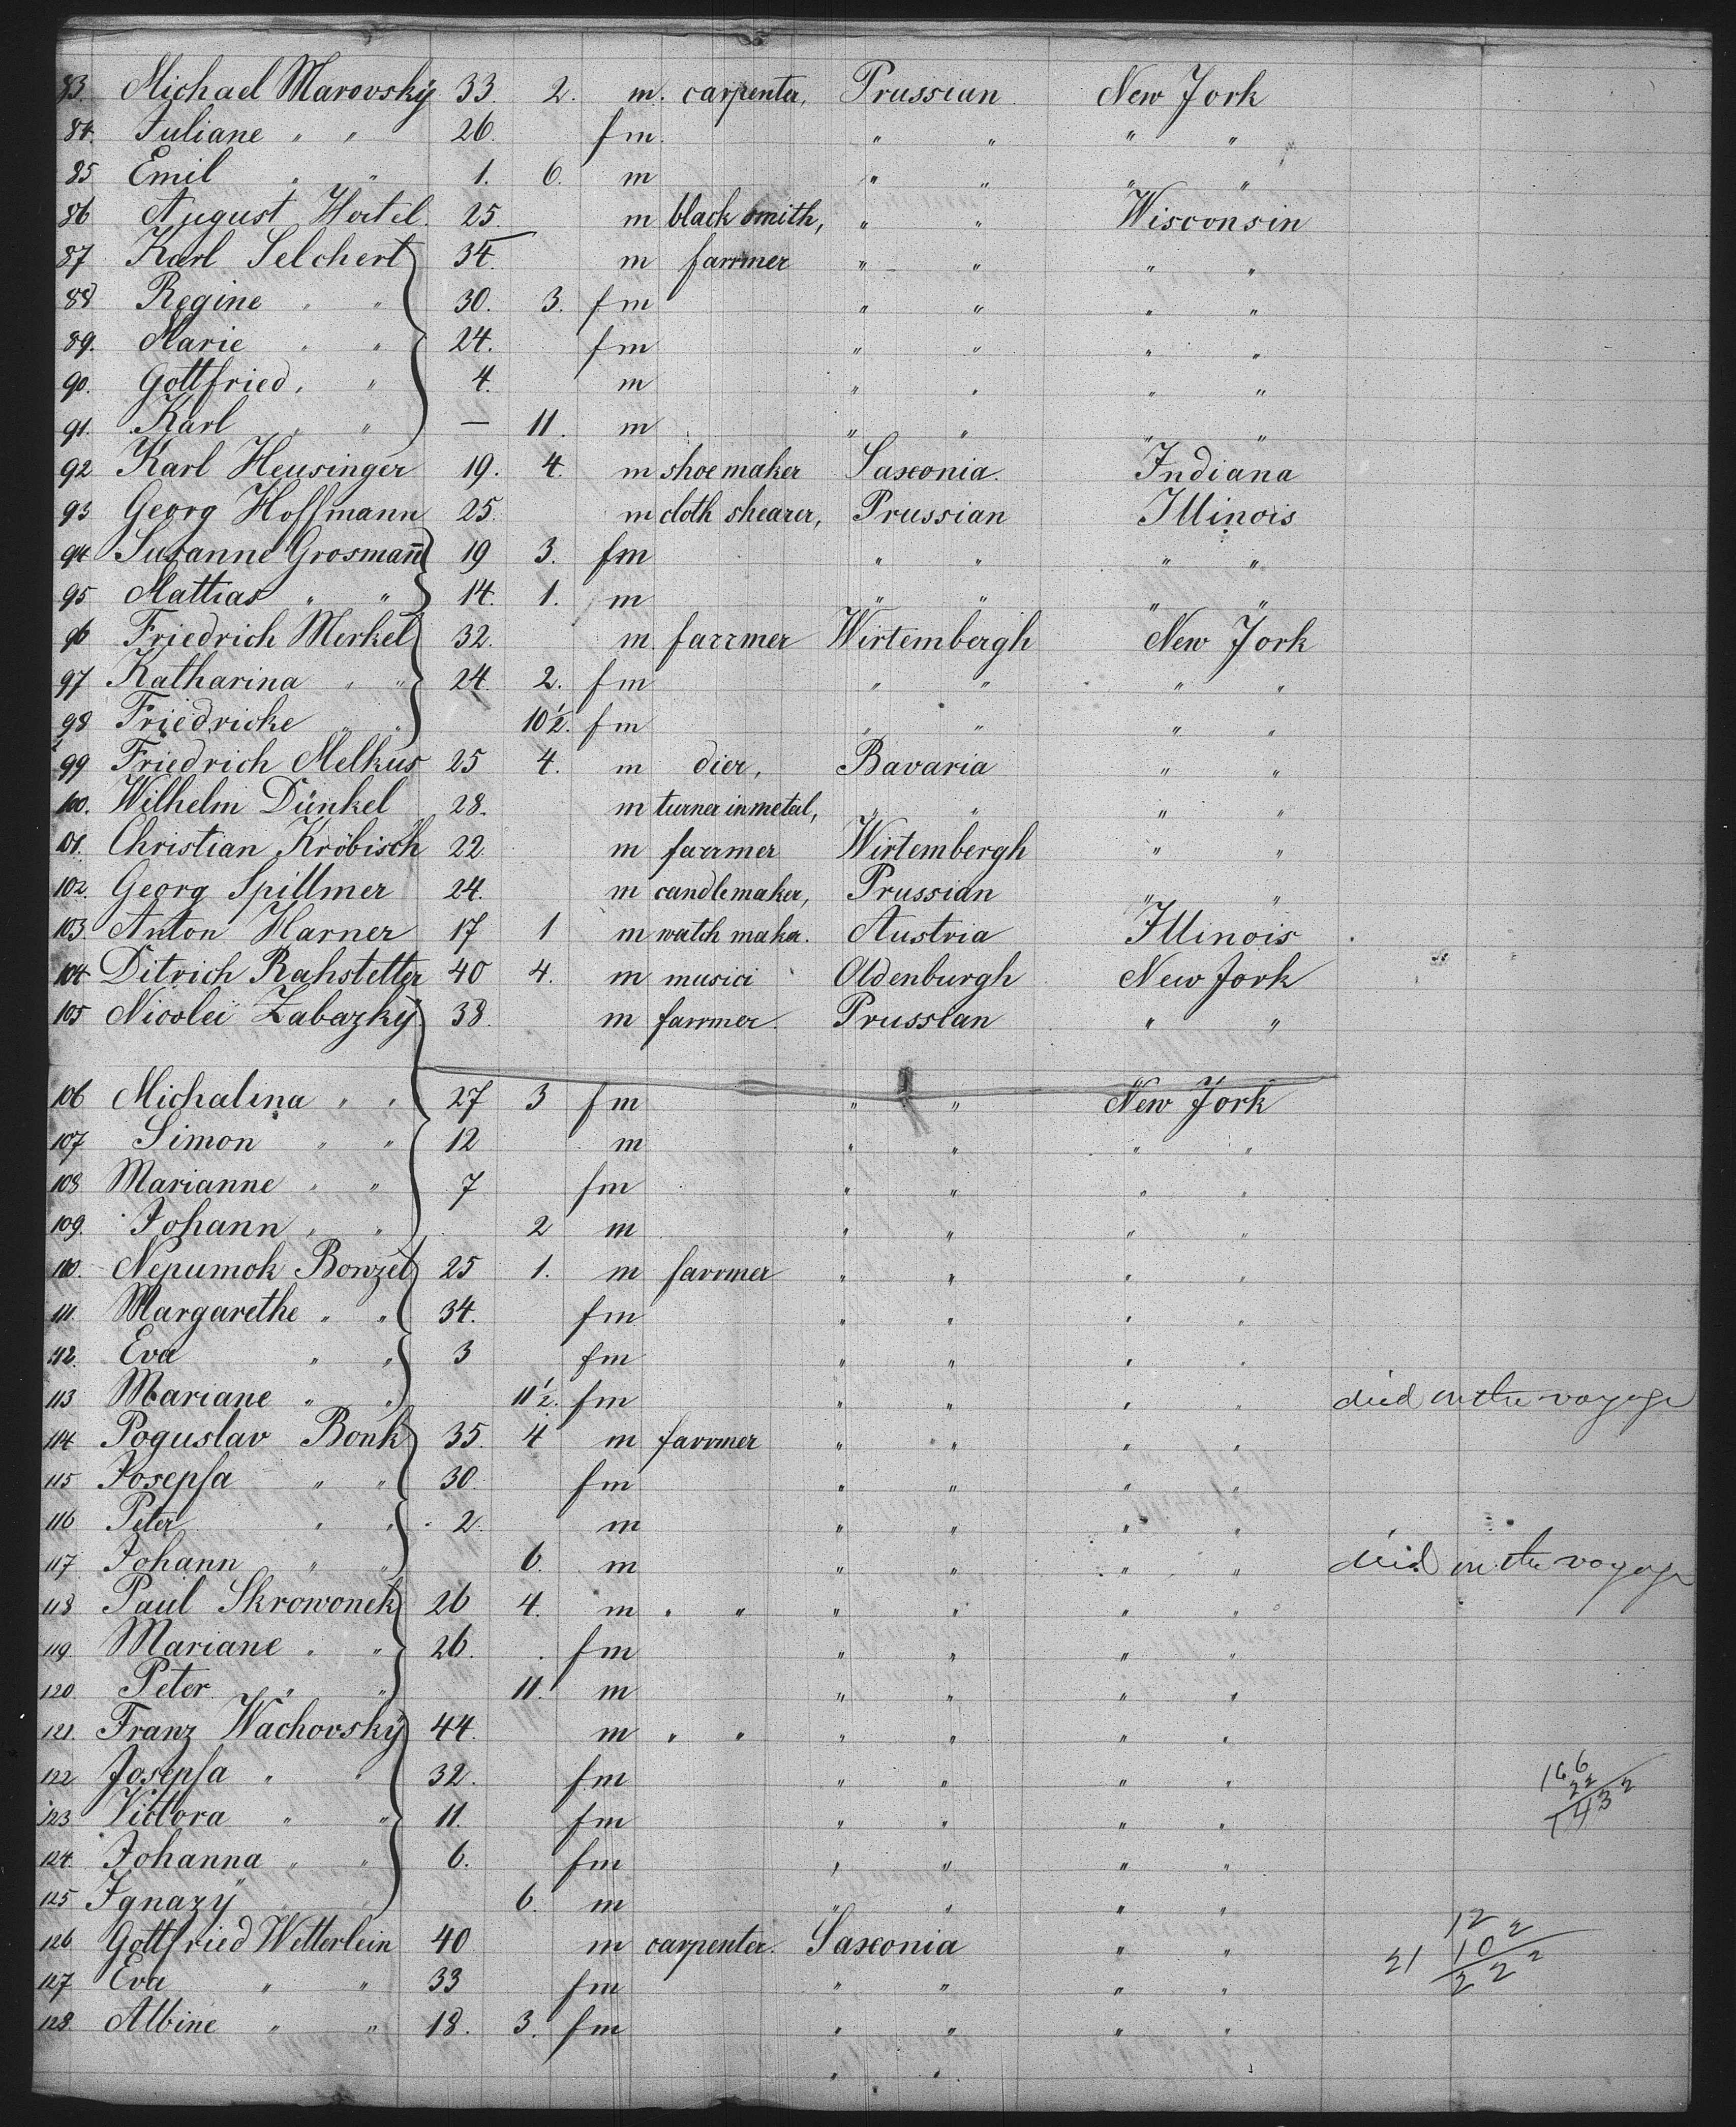 83. Michael Marovsky 33. 2. m. carpenter, Prussian New York
84. Juliane " " 26. fm. " " " "
85 Emil " " 1. 6. m " " " "
86 August Hertel. 25. m black smith, " " Wisconsin
87 Karl Selchert 34. m farrmer " " " "
88 Regine " " 30. 3. fm " " " "
89. Marie " " 24. fm " " " "
90. Gottfried, " 4. m " " " "
91. Karl " " — 11. m " " " "
92 Karl Heusinger 19. 4. m shoemaker Saxonia. Indiana
93 Georg Hoffmann 25. m cloth shearer, Prussian Illinois
94 Susanne Grosman̄ 19 3. fm " " " "
95 Mattias " " 14. 1. m " " " "
96 Friedrich Merkel 32. m. farrmer Wirtembergh New York
97 Katharina " " 24. 2. fm " " " "
98 Friedricke " " 10½. fm " " " "
99 Friedrich Melkus 25 4. m dier, Bavaria " "
100. Wilhelm Dünkel 28. m turner in metal, " " " "
101. Christian Kröbisch 22. m farrmer Wirtembergh " "
102. Georg Spillmer 24. m candlemaker, Prussian " "
103. Anton Harner 17 1 m watch maker. Austria Illinois
104 Ditrich Rahstetter 40 4. m musici Oldenburgh New York
105 Nicolei Zabazky 38. m farrmer. Prussian " "
106 Michalina " " 27 3 fm " " New York
107 Simon " " 12 m " " " "
108 Marianne " " 7 fm " " " "
109. Johann " " 2 m " " " "
110. Nepumok Bonzel 25 1. m farrmer " " " "
111. Margarethe " " 34. fm " " " "
112. Eva " " 3 fm " " " "
113 Mariane " " 11½. fm " " " " died on the voyage
114 Poguslav Bonk 35. 4 m farrmer " " " "
115 Josepfa " " 30. fm " " " "
116 Peter " " 2. m " " " "
117 Johann " " 6. m " " " " died on the voyage
118 Paul Skrowonek 26 4. m " " " " " "
119. Mariane " " 26. fm " " " "
120. Peter " " 11. m " " " "
121. Franz Wachovsky 44. m " " " " " "
122 Josepfa " " 32. fm " " " "
123 Victora " " 11. fm " " " "
124. Johanna " " 6. fm " " " "
125 Ignazy " " 6. m " " " "
126 Gottfried Wetterlein 40 m carpenter. Saxonia " "
127 Eva " " 33 fm " " " "
128. Albine " " 18. 3. fm " " " "
" "